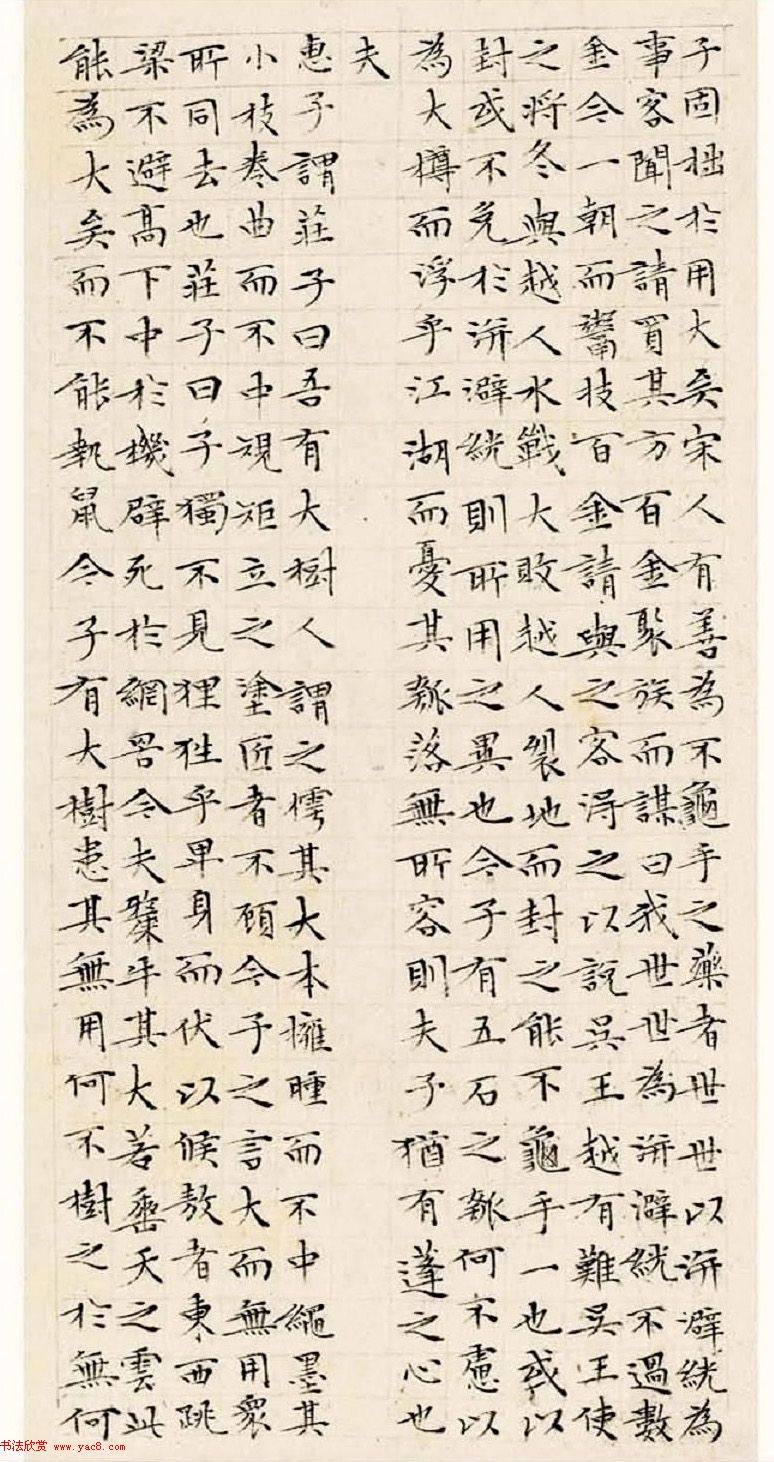 子固拙於用大矣宋人有善為不龜手之藥者世世以洴澼絖為
事客聞之請買其方百金聚族而謀曰我世世為洴澼絖不過數
金今一朝而鬻技百金請與之客得之以說吳王越有難吳王使
之將冬與越人水戰大敗越人裂地而封之能不龜手一也或以
封或不免於洴澼絖則所用之異也今子有五石之瓠何不慮以
為大樽而浮乎江湖而憂其瓠落無所容則夫子猶有蓬之心也
夫
惠子謂莊子曰吾有大樹人謂之樗其大本擁腫而不中繩墨其
小枝卷曲而不中規矩立之塗匠者不顧今子之言大而無用衆
所同去也莊子曰子獨不見狸狌乎卑身而伏以候敖者東西跳
梁不避高下中於機辟死於網罟今夫斄牛其大若垂天之雲此
能為大矣而不能執鼠今子有大樹患其無用何不樹之於無何
书法欣赏 www.yac8.com